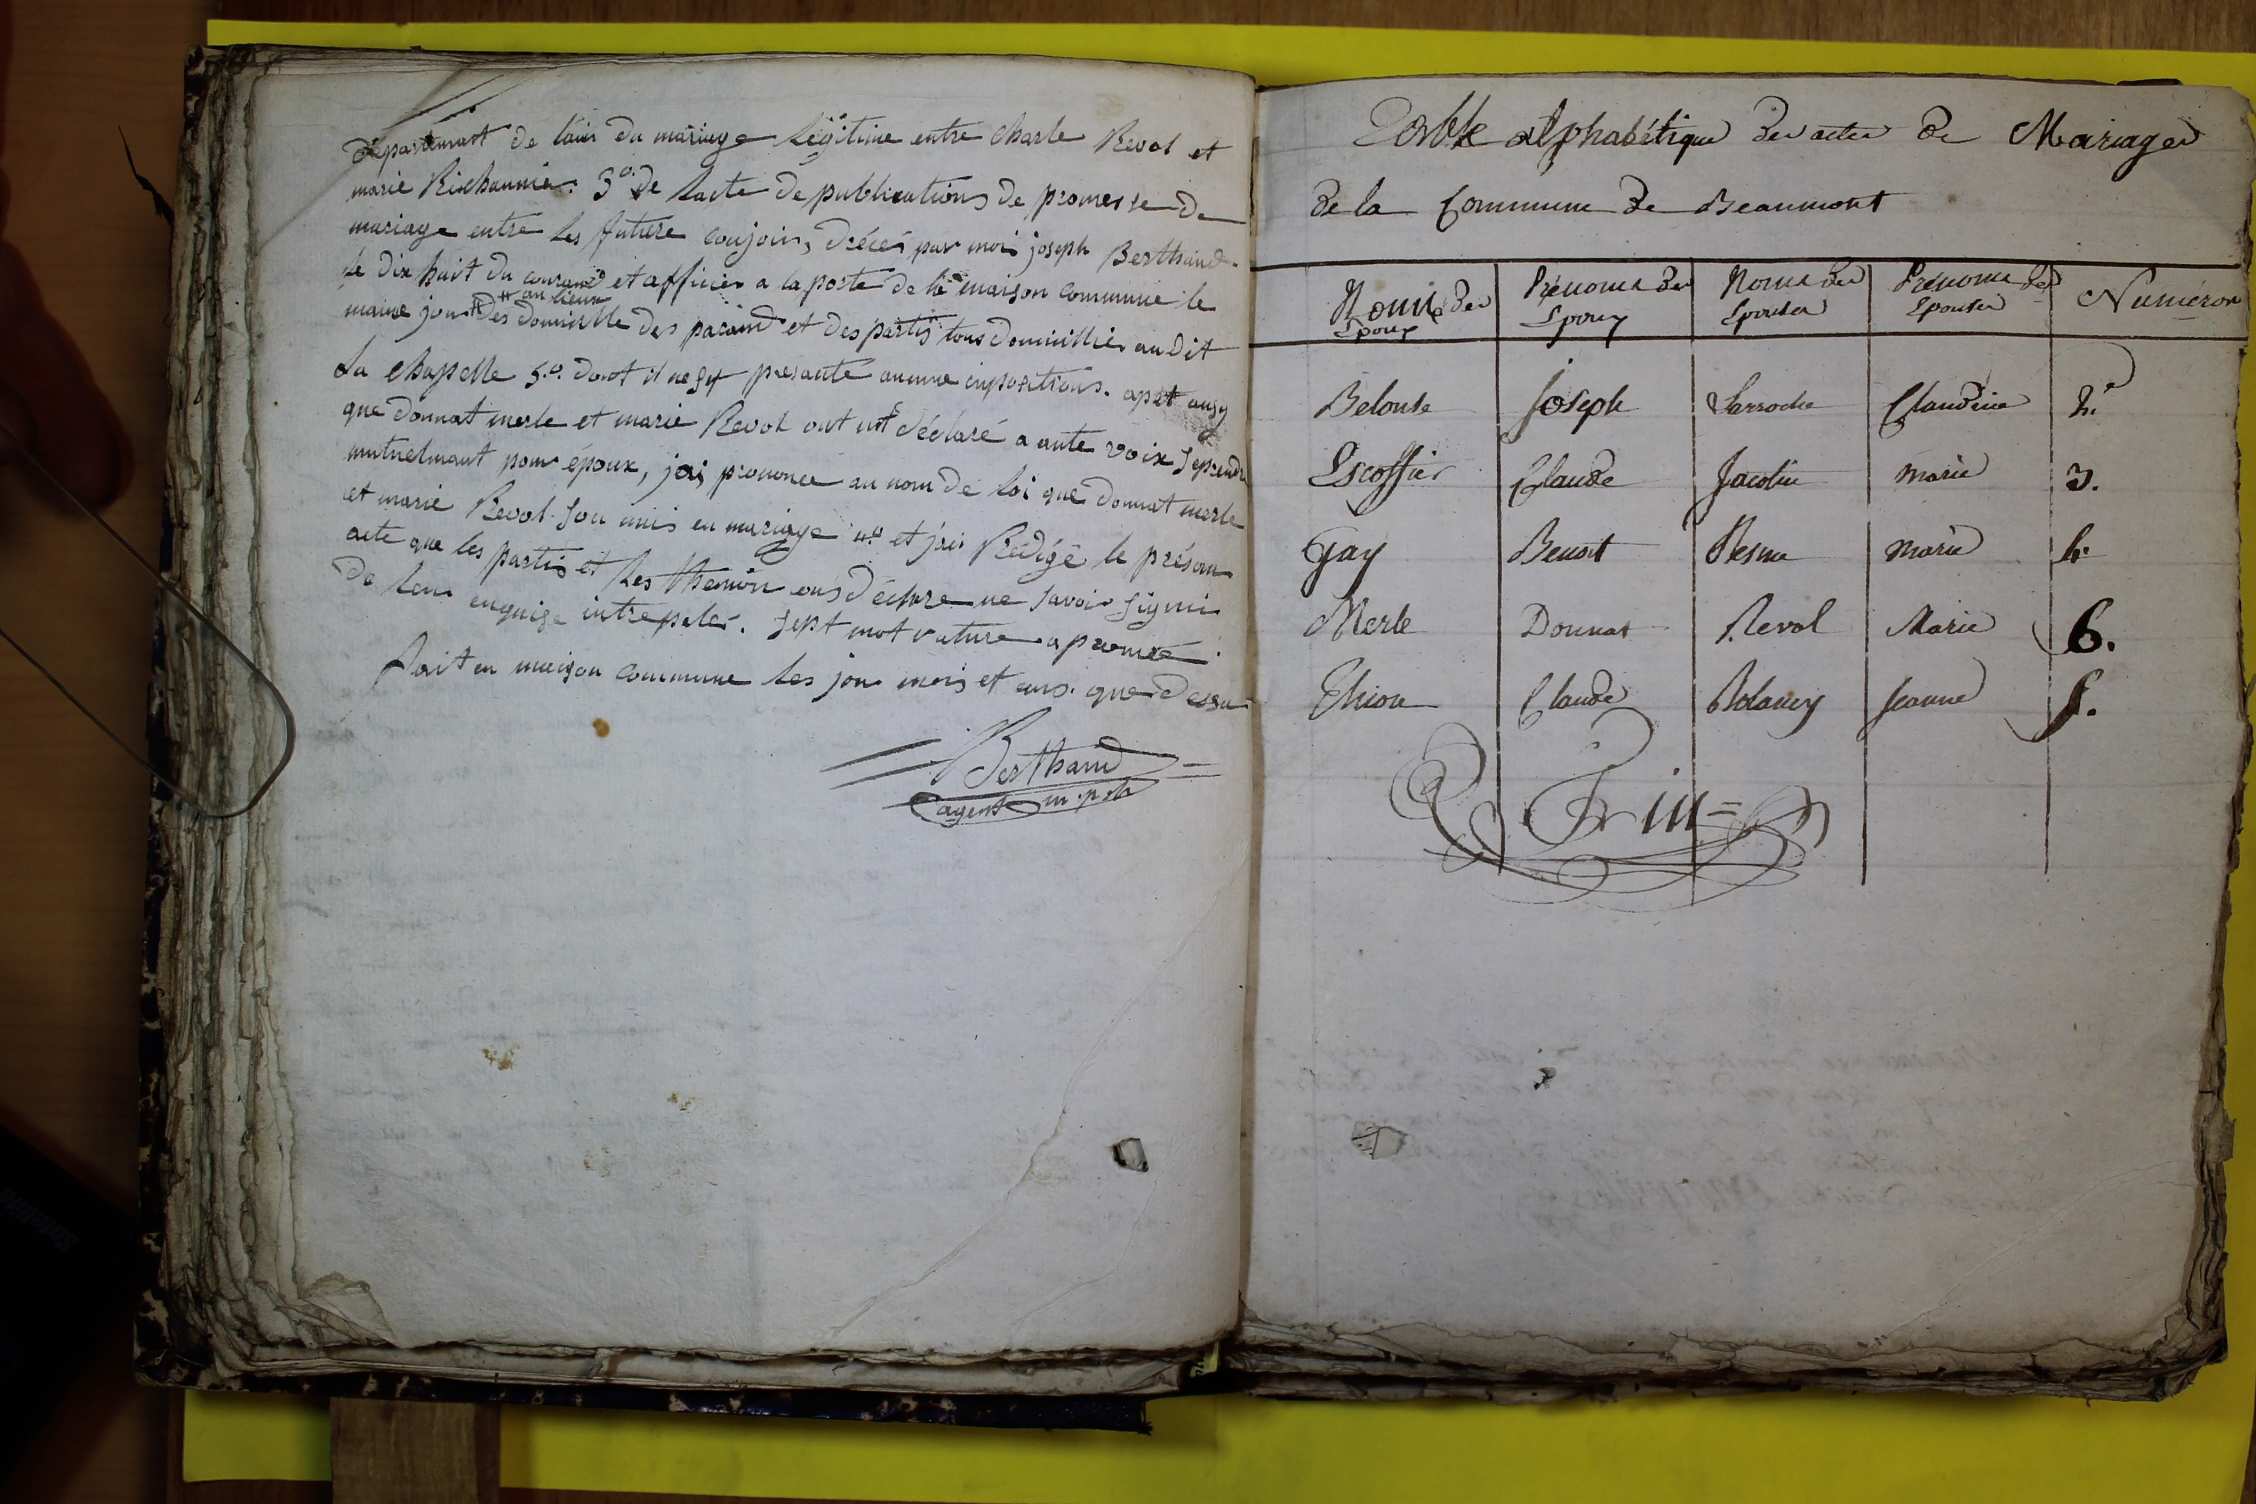 département de l'ain du mariage Légitime entre Charle Revol et
marie Richaunie. 3.o de lacte de publications de promesse de
mariage entre les future conjoin, drécés par moi joseph Berthaud
le dix huit du courand et afficier a la porte de la maison commune le
maime jour
au lieux
des domicille des paraind et des partis tous domicillies audit
La Chapelle 5.o dont il ne sy presanté aucune opositions. apret ausy
que donnat merle et marie Revol ont déclaré a aute voix seprendre
mutuelmant pour époux, jai prononcé au nom de loi que donnat merle
et marie Revol son unis en mariage 4.o et jai Rédigé le présan
acte que les partis et les themoin ons déclare ne savoir signié
de leur enquise intrepelés. Sept mot rature aprouvé.
fait en maison commune les jour mois et ans. que dessu
Berthaud
agent m.pal
Table alphabétique des actes de Mariages
de la Commune de Beaumont
Noms des Epoux Prénoms des Epoux Noms des Epouses Prénoms des Epouses Numéros
Belouse Joseph Larroche Claudine 2.
Escoffier Claude Jacolin marie 3.
Gay Benoit Mesme marie 4.
Merle Donnat Revol Marie 6.
Thion Claude Rolancy Jeanne 5.
Fin